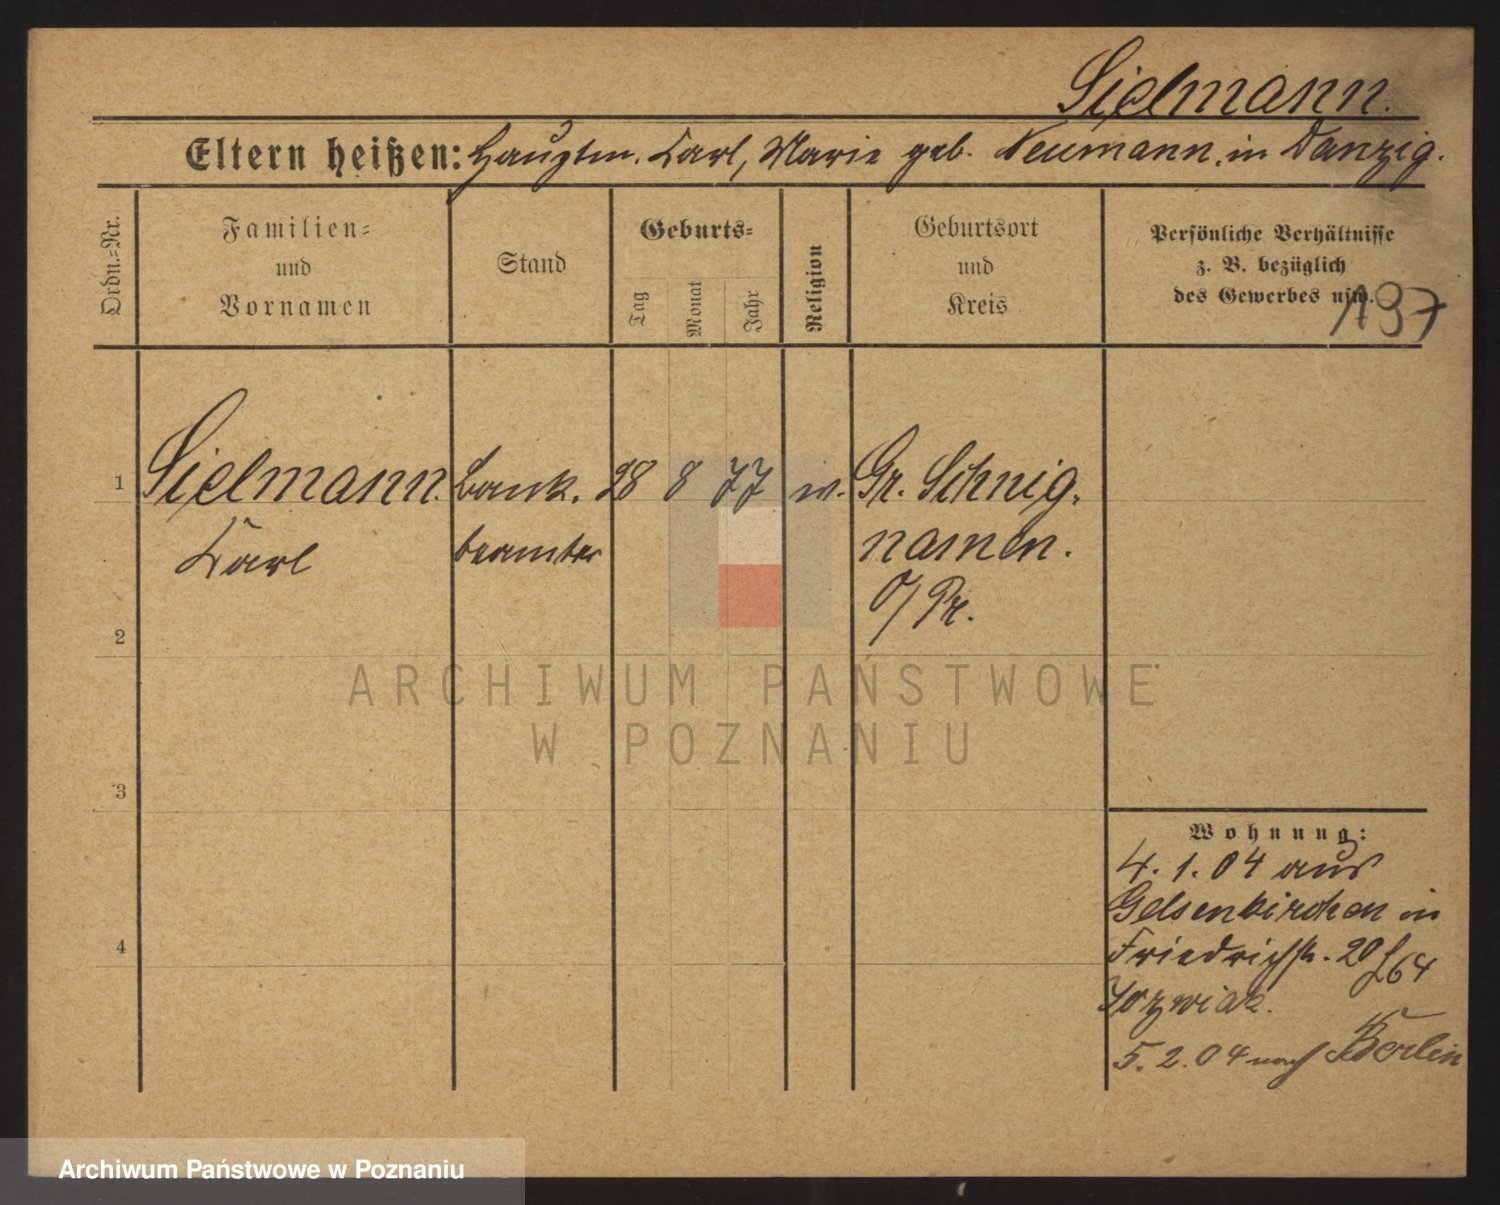 Sielmann.
Eltern heißen: Hauptm. Karl, Marie geb. Neumann. in Danzig.
Ordn.-Nr.
Familien-
und
Vornamen
Stand
Geburts-
Tag
Monat
Jahr
Religion
Geburtsort
und
Kreis
Persönliche Verhältnisse
z. B. bezüglich
des Gewerbes usw.
197
1 Sielmann. Bank. 28 8 77 Gr. Schnig.
Karl beamter namen.
O/Pr.
2
3
4
Wohnung:
4. 1. 04 aus
Gelsenkirchen in
Friedrichstr. 20
Jozwiak.
5. 2. 04 nach Berlin
ARCHIWUM PAŃSTWOWE
W POZNANIU
Archiwum Państwowe w Poznaniu